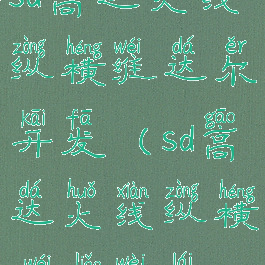 sd高达火线
zòng héng wéi dá ěr
纵横维达尔
kāi fā gāo
开发(sd高
dá huǒ xiàn zòng héng
达火线纵横
wéi wéi